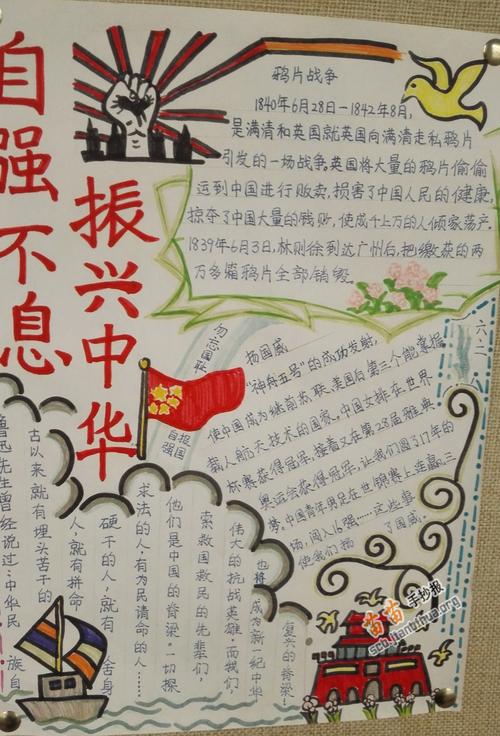 自强不息
振兴中华
鸦片战争
1840年6月28日—1842年8月,
是满清和英国就英国向满清走私鸦片
引发的一场战争。英国将大量的鸦片偷偷
运到中国进行贩卖,损害了中国人民的健康,
掠夺了中国大量的钱财,使成千上万的人倾家荡产。
1839年6月3日,林则徐到达广州后,把缴获的两
万多箱鸦片全部销毁
勿忘国耻
报国
自强
扬国威
“神舟五号”的成功发射,
使中国成为继前苏联、美国后第三个能掌握
载人航天技术的国家。中国女排在世界
杯赛获得冠军,接着又在第28届雅典
奥运会获得冠军,让我们圆了17年的
梦。中国青年男足在世锦赛上连赢三
场,闯入16强……这些事
使我们扬了国威。
六、二
鲁迅先生曾
经说过:中华民
族自
古以来就有埋头苦干的
人,就有拼命
硬干的人,就有舍身
求法的人,有为民请命的人……
他们是中国的脊梁。一切探
索救国救民的先辈们,
伟大的抗战英雄,而我们
也将成为新一纪中华
复兴的脊梁!
苗苗手抄报
scb.jiantihua.org